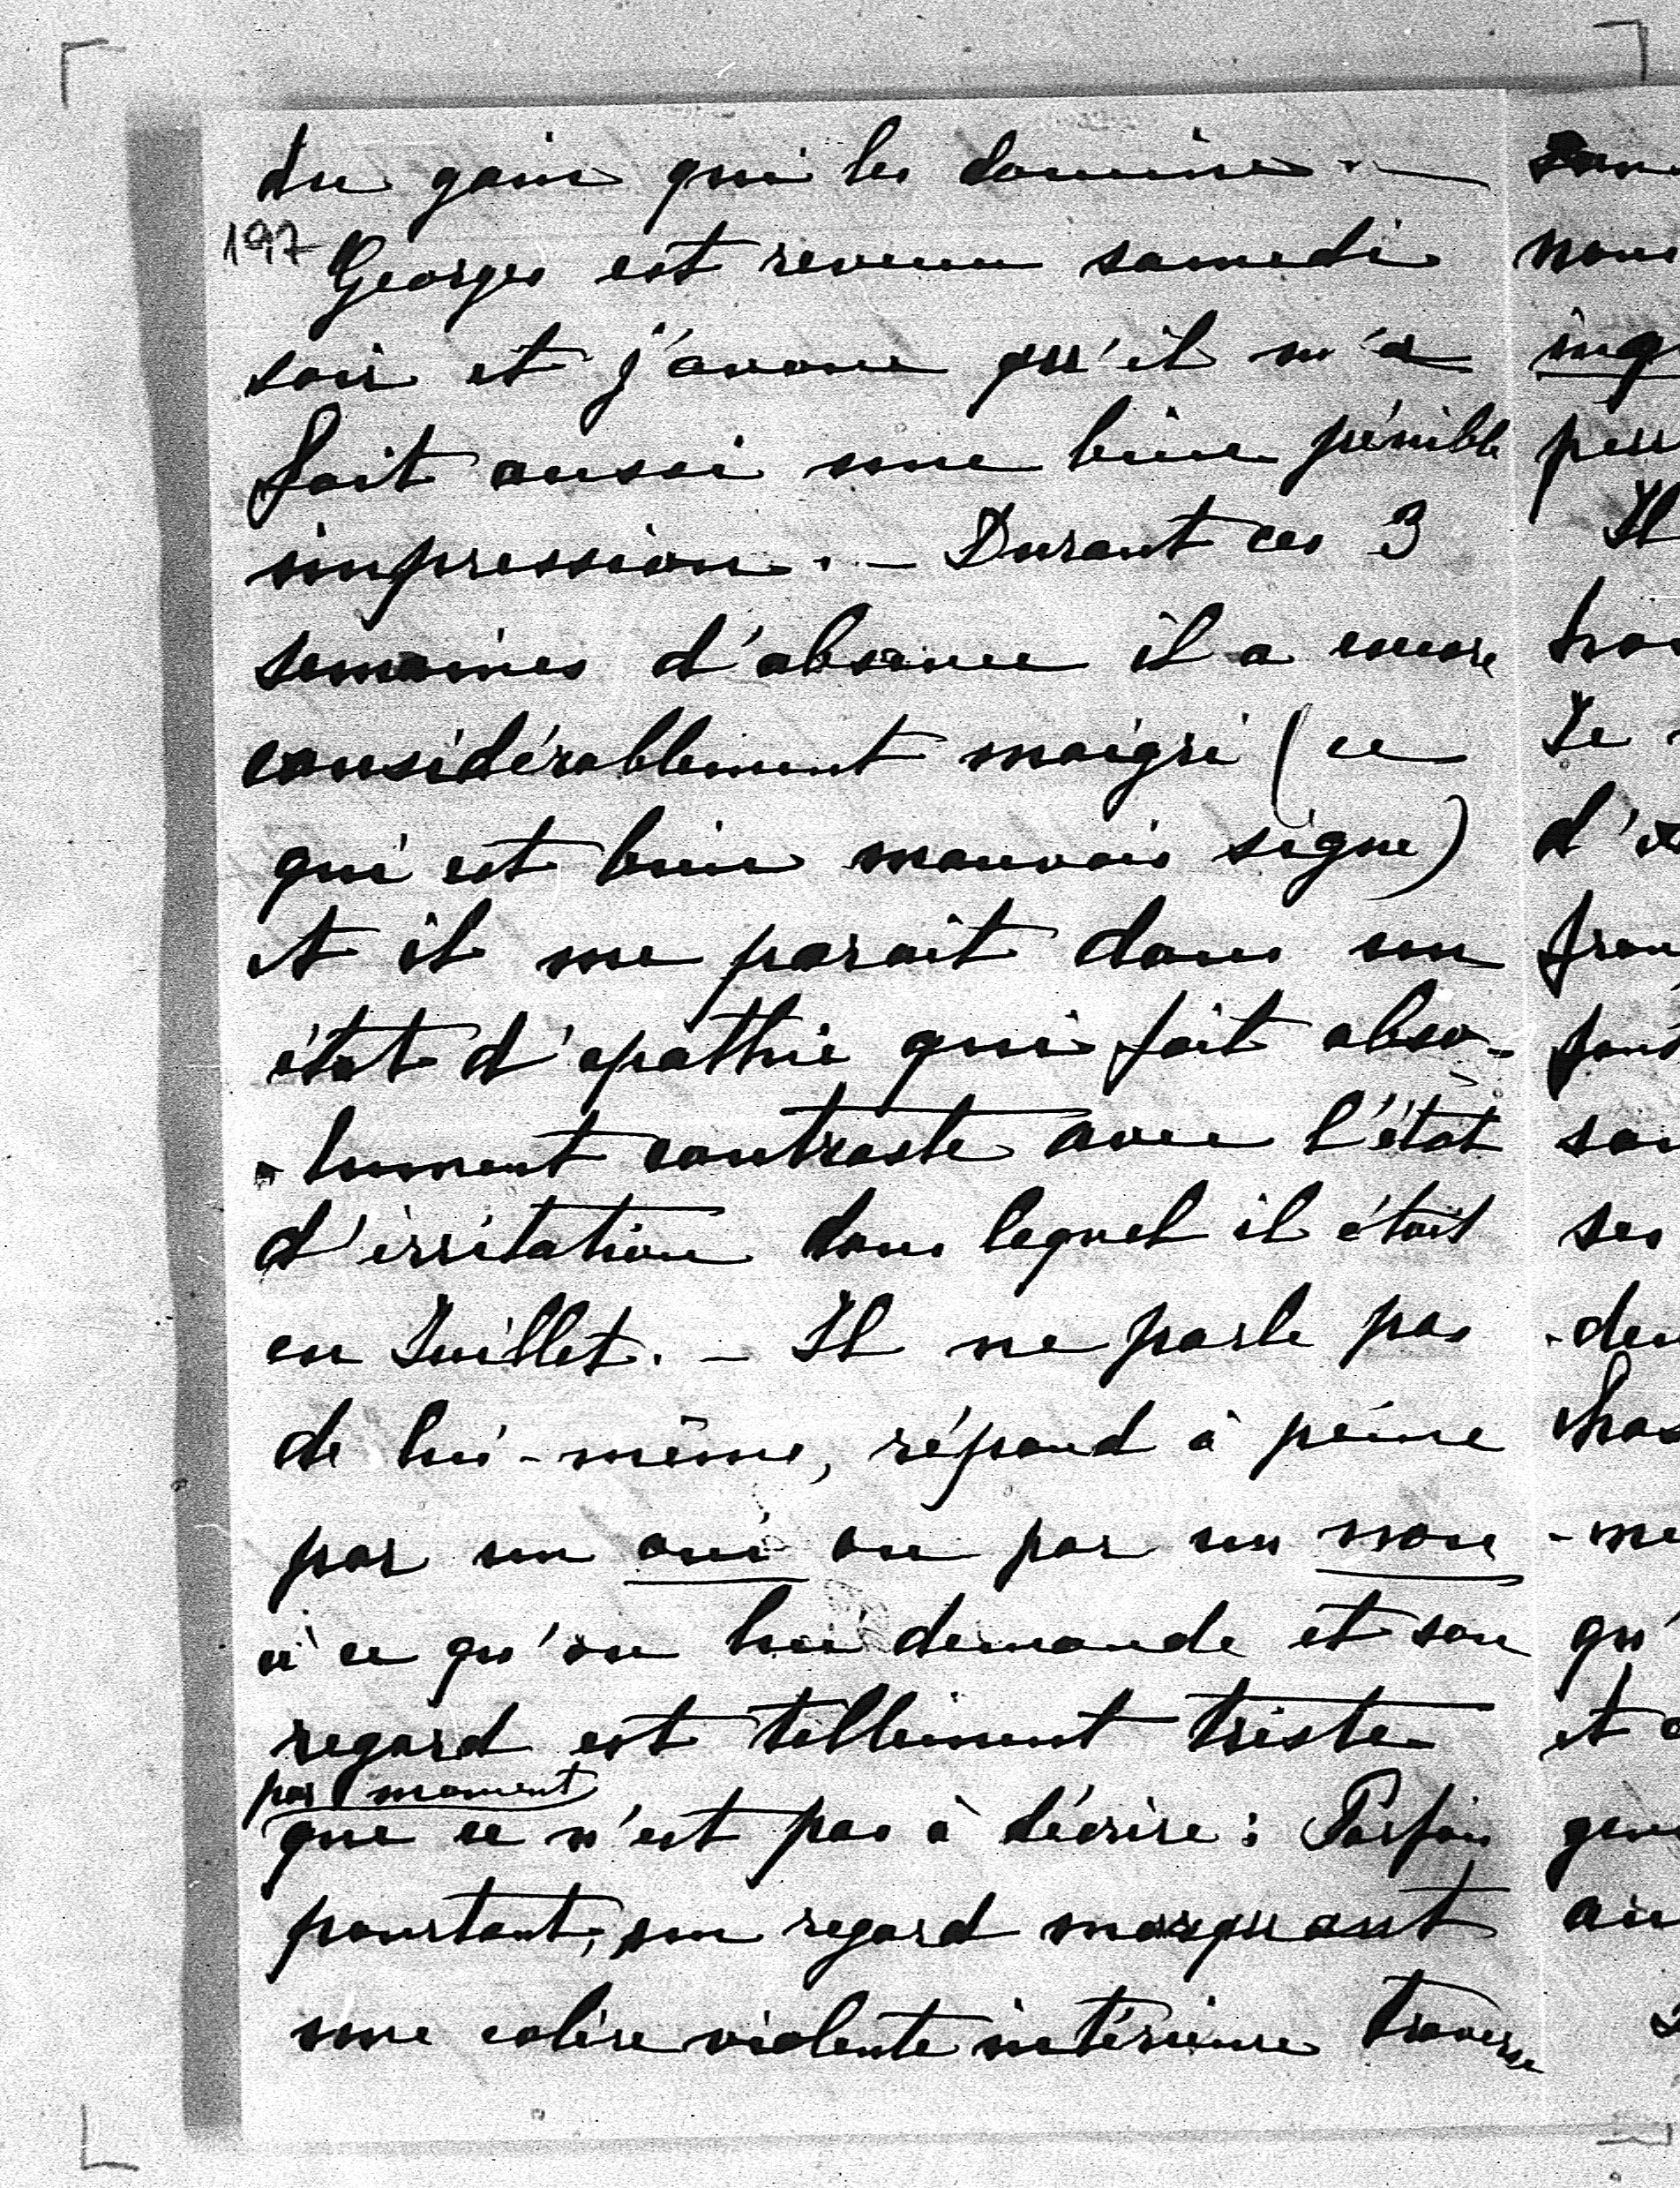 du gain qui les domine. —
197
Georges est revenu samedi
soir et j'avoue qu'il m'a
fait aussi une bien pénible
impression. — Durant ces 3
semaines d'absence il a encore
considérablement maigri (ce
qui est bien mauvais signe)
et il me parait dans un
état d'apathie qui fait abso-
-lument contraste avec l'état
d'irritation dans lequel il était
en Juillet. — Il ne parle pas
de lui-même, répond à peine
par un oui ou par un non
à ce qu'on lui demande et son
regard est tellement triste
par moment
que ce n'est pas à décrire : Parfois
pourtant, un regard marquant
une colère violente intérieure traverse